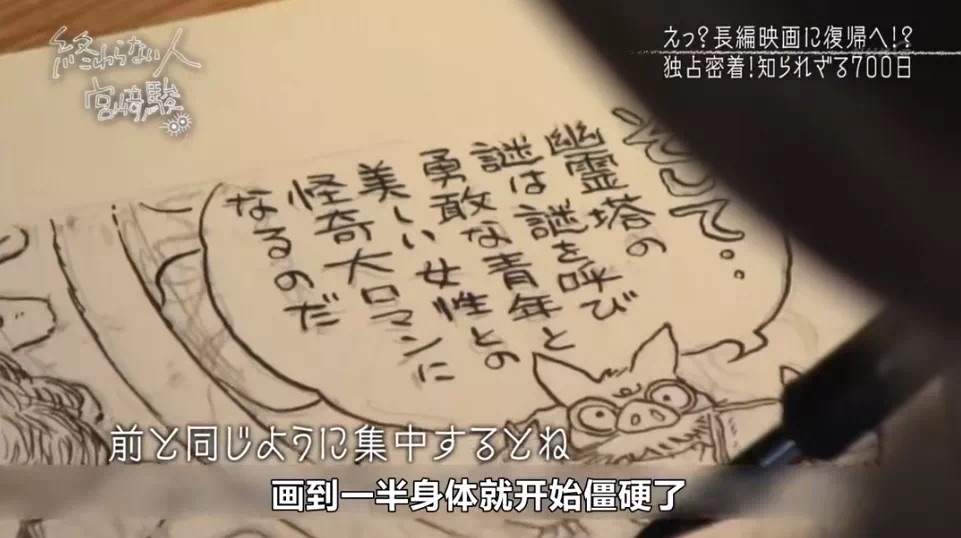 終わらない人
宮﨑駿
えっ?長編映画に復帰へ!?
独占密着!知られざる700日
そして…
幽霊塔の
謎は謎を呼び
勇敢な青年と
美しい女性との
怪奇大ロマンに
なるのだ
前と同じように集中するとね
画到一半身体就开始僵硬了